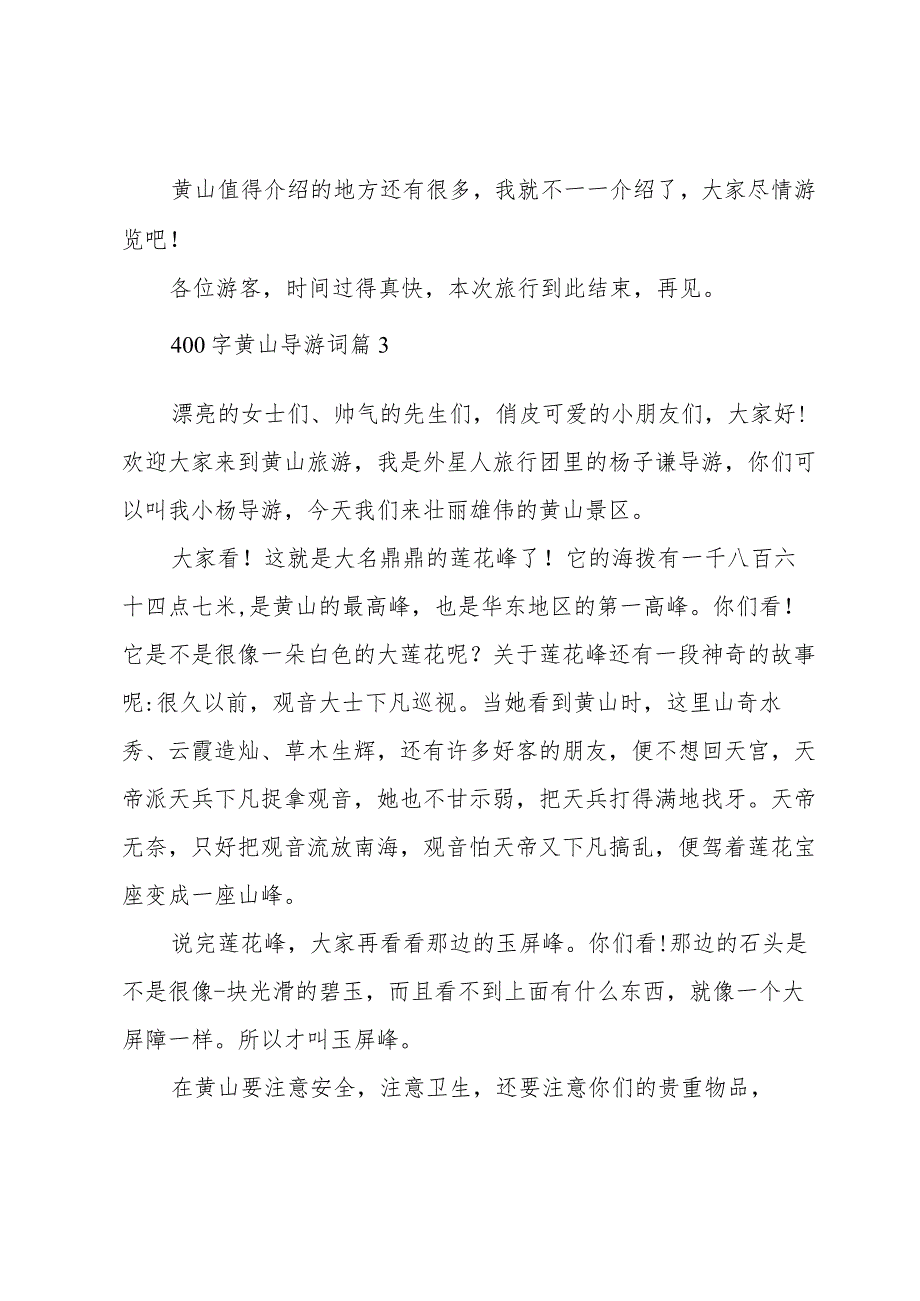 黄山值得介绍的地方还有很多，我就不一一介绍了，大家尽情游
览吧！
各位游客，时间过得真快，本次旅行到此结束，再见。
400字黄山导游词篇3
漂亮的女士们、帅气的先生们，俏皮可爱的小朋友们，大家好!
欢迎大家来到黄山旅游，我是外星人旅行团里的杨子谦导游，你们可
以叫我小杨导游，今天我们来壮丽雄伟的黄山景区。
大家看！这就是大名鼎鼎的莲花峰了！它的海拨有一千八百六
十四点七米,是黄山的最高峰，也是华东地区的第一高峰。你们看！
它是不是很像一朵白色的大莲花呢？关于莲花峰还有一段神奇的故事
呢:很久以前，观音大士下凡巡视。当她看到黄山时，这里山奇水
秀、云霞造灿、草木生辉，还有许多好客的朋友，便不想回天宫，天
帝派天兵下凡捉拿观音，她也不甘示弱，把天兵打得满地找牙。天帝
无奈，只好把观音流放南海，观音怕天帝又下凡搞乱，便驾着莲花宝
座变成一座山峰。
说完莲花峰，大家再看看那边的玉屏峰。你们看!那边的石头是
不是很像-块光滑的碧玉，而且看不到上面有什么东西，就像一个大
屏障一样。所以才叫玉屏峰。
在黄山要注意安全，注意卫生，还要注意你们的贵重物品，